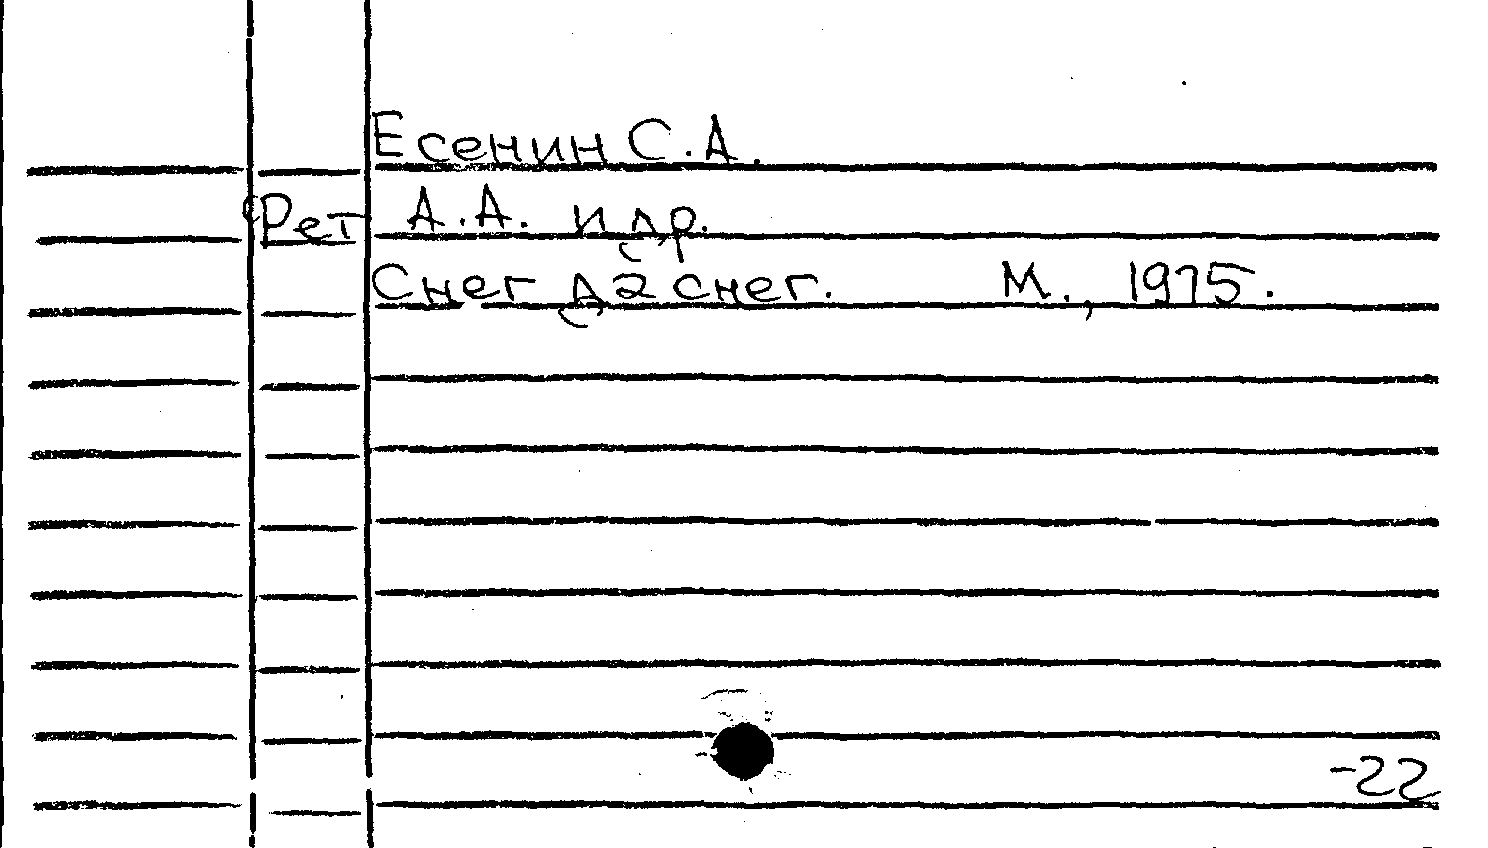 Есенин С.А.
Фет А.А. и др.
Снег да снег. М., 1975.
-22